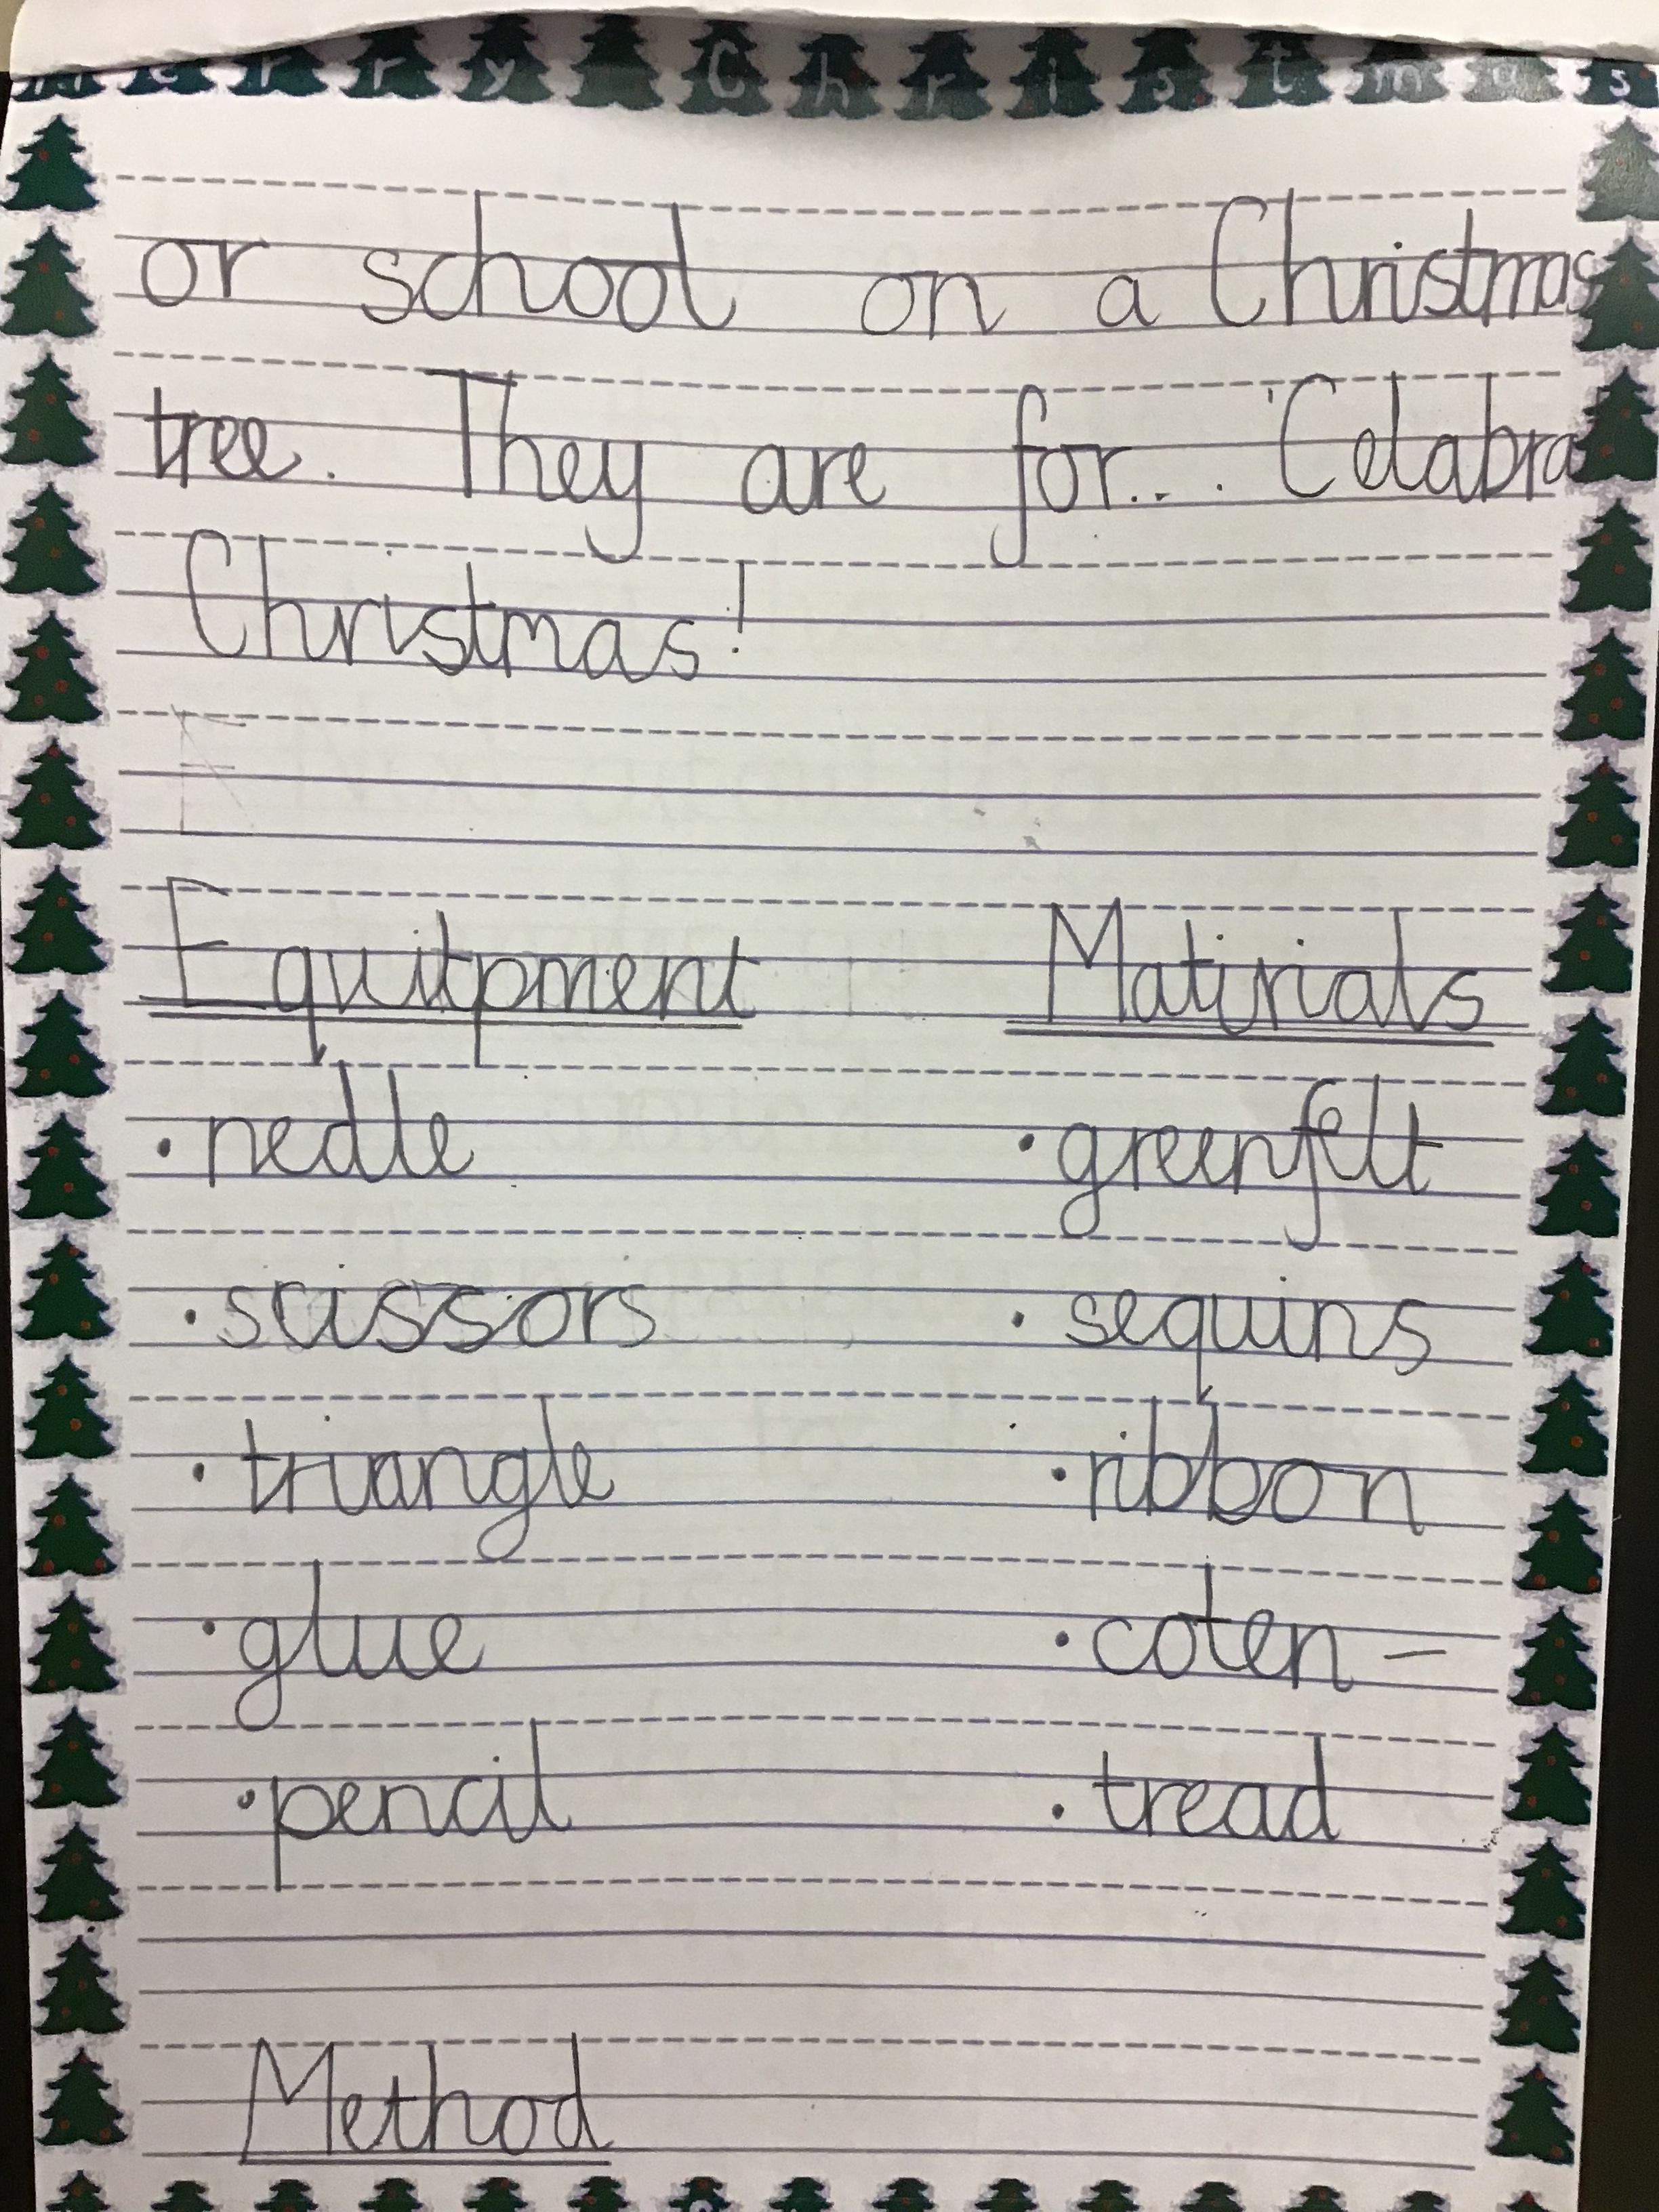 Merry Christmas
or school on a Christmas
tree. They are for... Celabra
Christmas!
Equitpment Matirials
• nedle • greenfelt
• scissors • sequins
• triangle • ribbon
• glue • coten –
• pencil • tread
Method